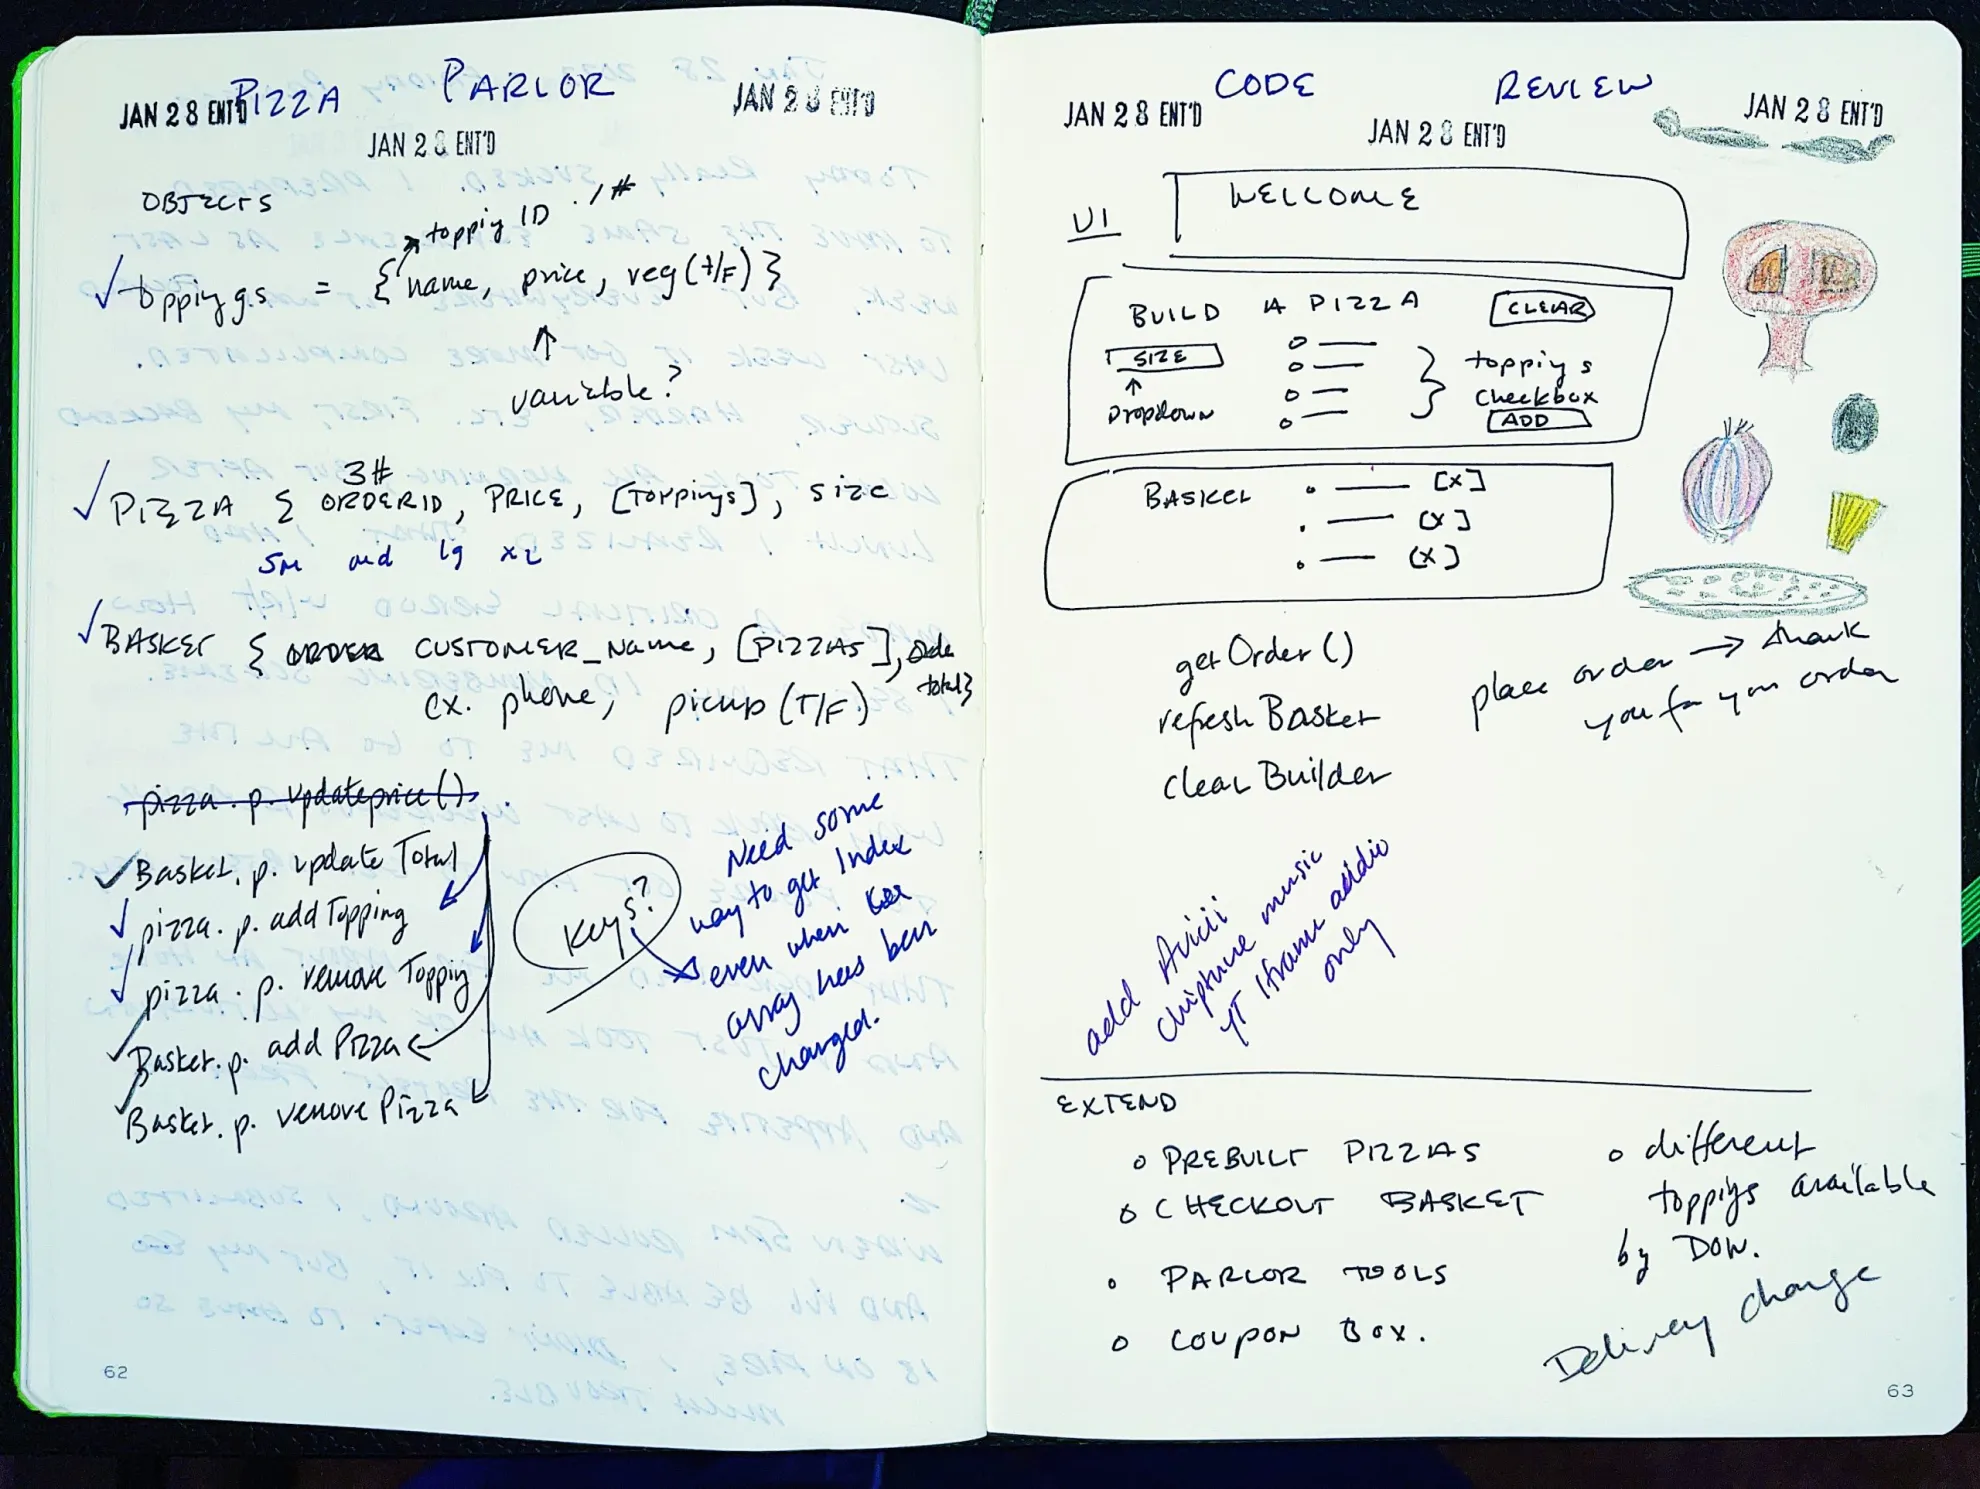 PIZZA PARLOR
JAN 28 ENT'D
JAN 28 ENT'D
JAN 28 ENT'D
OBJECTS
topping ID . / #
toppings = { name, price, veg (T/F) }
variable?
3#
PIZZA { ORDERID, PRICE, [TOPPINGS], size
sm md lg x2
BASKET { ORDER CUSTOMER_Name, [PIZZAS], Order
total }
ex. phone, pickup (T/F)
pizza. p. updateprice().
Basket. p. update Total
pizza. p. add Topping
pizza. p. remove Topping
Basket. p. add Pizza
Basket. p. remove Pizza
Keys?
Need some
way to get Index
even when
array has been
changed.
62
CODE REVIEW
JAN 28 ENT'D
JAN 28 ENT'D
JAN 28 ENT'D
UI
WELCOME
BUILD A PIZZA
CLEAR
SIZE
Dropdown
toppings
checkbox
ADD
BASKET
[x]
[x]
[x]
getOrder()
refresh Basket
clear Builder
place order → thank
you for your order
add Avicii
chiptune music
YT Iframe addio
only
EXTEND
o PREBUILT PIZZAS
o CHECKOUT BASKET
o PARLOR TOOLS
o COUPON BOX.
o different
toppings available
by DOW.
Delivery change
63